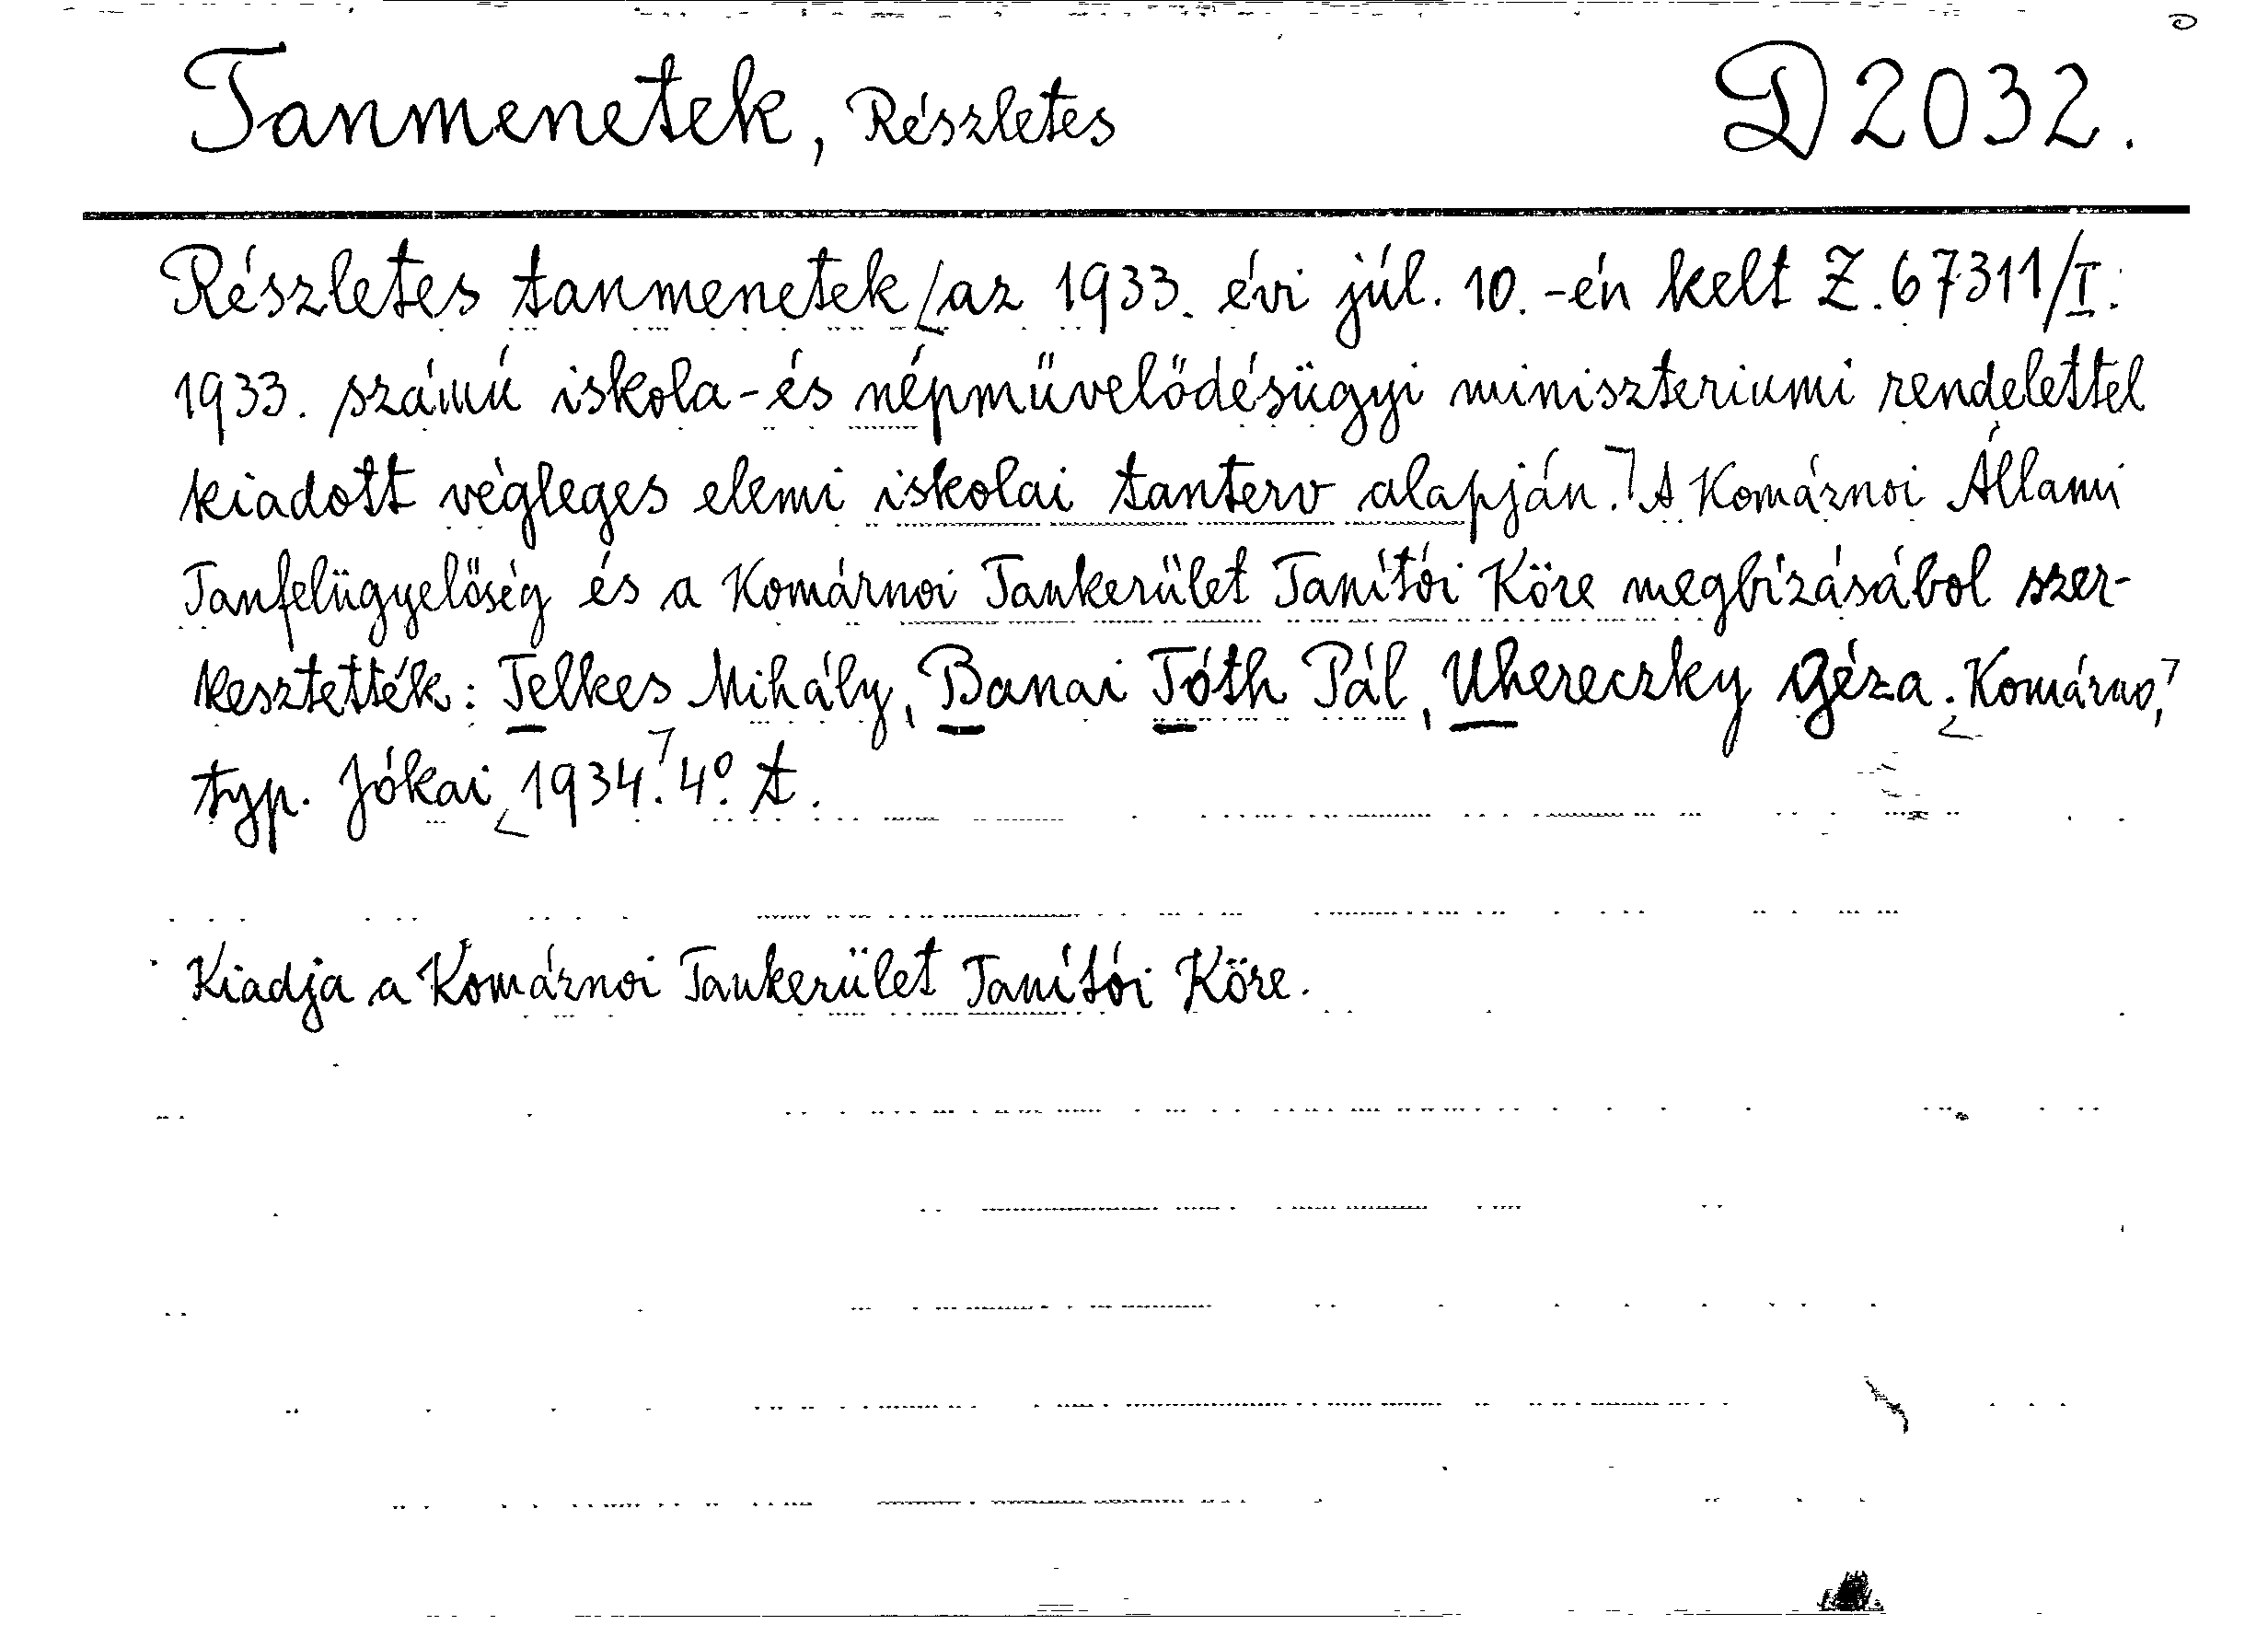 Tanmenetek, Részletes D 2032.
Részletes tanmenetek [az 1933. évi júl. 10.-én kelt Z. 67311/I.
1933. számú iskola-és népművelődésügyi miniszteriumi rendelettel
kiadott végleges elemi iskolai tanterv alapján.] A Komárnoi Állami
Tanfelügyelőség és a Komárnoi Tankerület Tanítói Köre megbízásából szer-
kesztették: Telkes Mihály, Banai Tóth Pál, Uhereczky Géza. [Komárno,]
typ. Jókai [1934.] 4º. t.
Kiadja a Komárnoi Tankerület Tanítói Köre.